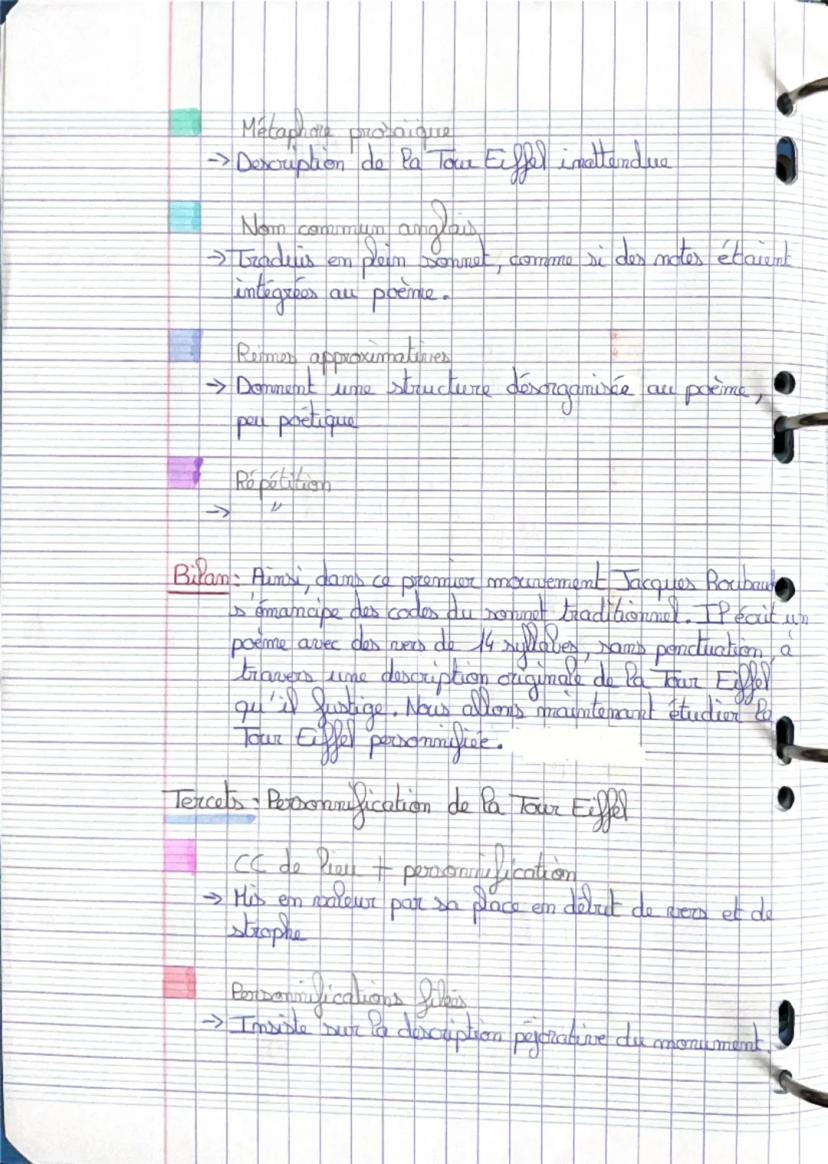 Métaphore prosaïque
-> Description de la Tour Eiffel inattendue
Nom commun anglais
-> Traduis en plein sonnet, comme si des notes étaient
intégrées au poème.
Reimes approximatives
-> Donnent une structure désorganisée au poème,
peu poétique
Répétition
-> "
Bilan : Ainsi, dans ce premier mouvement Jacques Roubaud
s'émancipe des codes du sonnet traditionnel. Il écrit un
poème avec des vers de 14 syllabes, sans ponctuation, à
travers une description originale de la Tour Eiffel
qu'il fustige. Nous allons maintenant étudier la
Tour Eiffel personnifiée.
Tercets : Personnification de la Tour Eiffel
CC de lieu + personnification
-> Mis en valeur par sa place en début de vers et de
strophe
Personnifications filés
-> Insiste sur la description péjorative du monument.